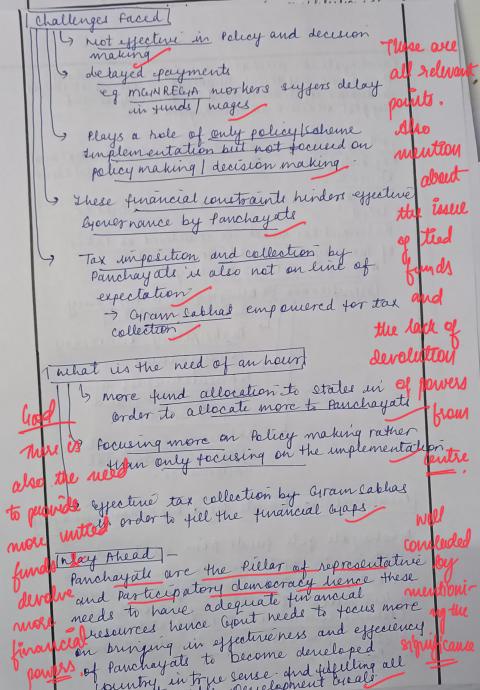 Challenges faced
Not effective in Policy and decision
making
delayed payments
eg MGNREGA workers suffers delay
in funds / wages
Plays a role of only policy/scheme
Implementation but not focused on
policy making / decision making
These financial constraints hinders effective
Governance by Panchayats
Tax imposition and collection by
Panchayats is also not on line of
expectation
→ Gram Sabhas empowered for tax
collection
These are
all relevant
points.
Also
mention
about
the issue
of tied
funds
and
the lack of
devolution
of powers
from
centre.
What is the need of an hour
more fund allocation to states in
order to allocate more to Panchayats
Focusing more on Policy making rather
than only focusing on the implementation
effective tax collection by Gram Sabhas
in order to fill the financial Gaps.
Good
There is
also the need
to provide
more untied
funds
devolve
more
financial
powers.
Way Ahead –
Panchayats are the Pillar of representative
and Participatory democracy hence these
needs to have adequate financial
resources hence Govt needs to focus more
on bringing in effectiveness and effeciency
of Panchayats to become developed
country in true sense and fulfilling all
Development Goals
Well
concluded
by
mentioni-
ng the
significance